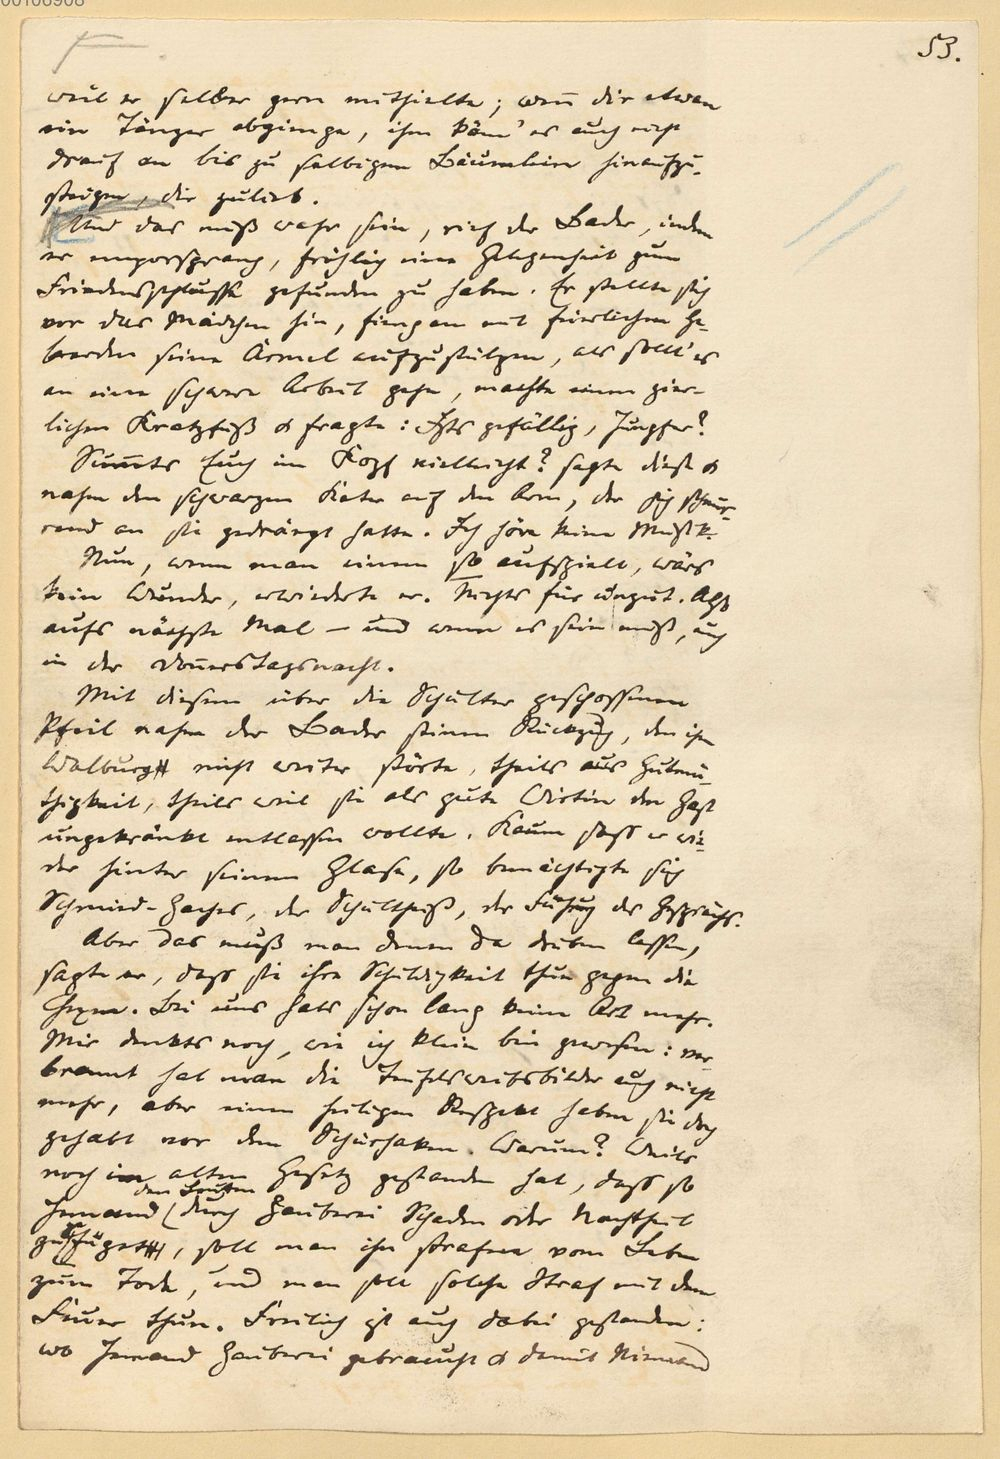 53.
weil er selber gern mithielte; weñ dir etwan
ein Tänzer abginge, ihm käm' es auch nicht
drauf an bis zu selbigem Bäumlein hinaufzu-
steigen, dir zulieb.
Und das muß wahr sein, rief der Bader, indem
er emporsprang, fröhlich eine Gelegenheit zum
Friedensschlusse gefunden zu haben. Er stellte sich
vor das Mädchen hin, fieng an mit feierlichen Ge-
berden seine Ärmel aufzustülpen, als sollt' es
an eine schwere Arbeit gehn, machte einen zier-
lichen Kratzfuß & fragte: Ists gefällig, Jungfer?
Sum̃ts Euch im Kopf vielleicht? sagte diese &
nahm den schwarzen Kater auf den Arm, der sich schnur-
rend an sie gedrängt hatte. Ich höre keine Musik.
Nun, wenn man einem so aufspielt, wärs
kein Wunder, erwiederte er. Nichts für ungut. Also
aufs nächste Mal – und wenn es sein muß, auch
in der Don̄erstagsnacht.
Mit diesem über die Schulter geschossenen
Pfeil nahm der Bader seinen Rückzug, den ihm
Walburg nicht weiter störte, theils aus Gutmü-
thigkeit, theils weil sie als gute Wirtin den Gast
ungekränkt entlassen wollte. Kaum saß er wie-
der hinter seinem Glase, so bemächtigte sich
Schmied-Zaches, der Schultheiß, der Führung des Gesprächs.
Aber das muß man denen da drüben lassen,
sagte er, dass sie ihre Schuldigkeit thun gegen die
Hexen. Bei uns hats schon lang keine Art mehr.
Mir denkts noch, wie ich klein bin gewesen: ver-
brannt hat man die Teufelsweibsbilder auch nicht
mehr, aber einen heiligen Respekt haben sie doch
gehabt vor dem Schürhaken. Warum? Weils
noch im alten Gesetz gestanden hat, dass so
den Leuten
Jemand durch Zauberei Schaden oder Nachtheil
zufüget, soll man ihn strafen vom Leben
zum Tode, und man soll solche Straf mit dem
Feuer thun. Freilich ist auch dabei gestanden:
wo Jemand Zauberei gebraucht & damit Niemand